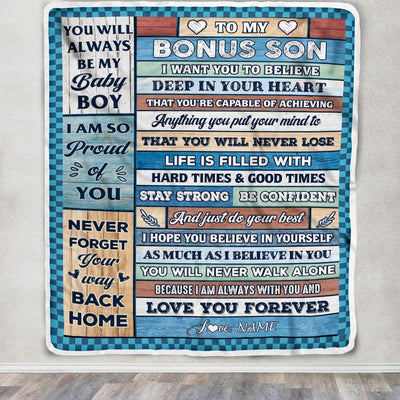 YOU WILL
ALWAYS
BE MY
Baby
BOY
I AM SO
Proud
of
YOU
NEVER
FORGET
Your
way
BACK
HOME
TO MY
BONUS SON
I WANT YOU TO BELIEVE
DEEP IN YOUR HEART
THAT YOU'RE CAPABLE OF ACHIEVING
Anything you put your mind to
THAT YOU WILL NEVER LOSE
LIFE IS FILLED WITH
HARD TIMES & GOOD TIMES
STAY STRONG BE CONFIDENT
And just do your best
I HOPE YOU BELIEVE IN YOURSELF
AS MUCH AS I BELIEVE IN YOU
YOU WILL NEVER WALK ALONE
BECAUSE I AM ALWAYS WITH YOU AND
LOVE YOU FOREVER
Love, NAME